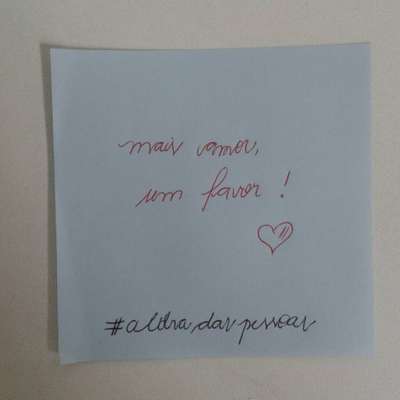 mais amor,
um favor !
#aletradaspessoas